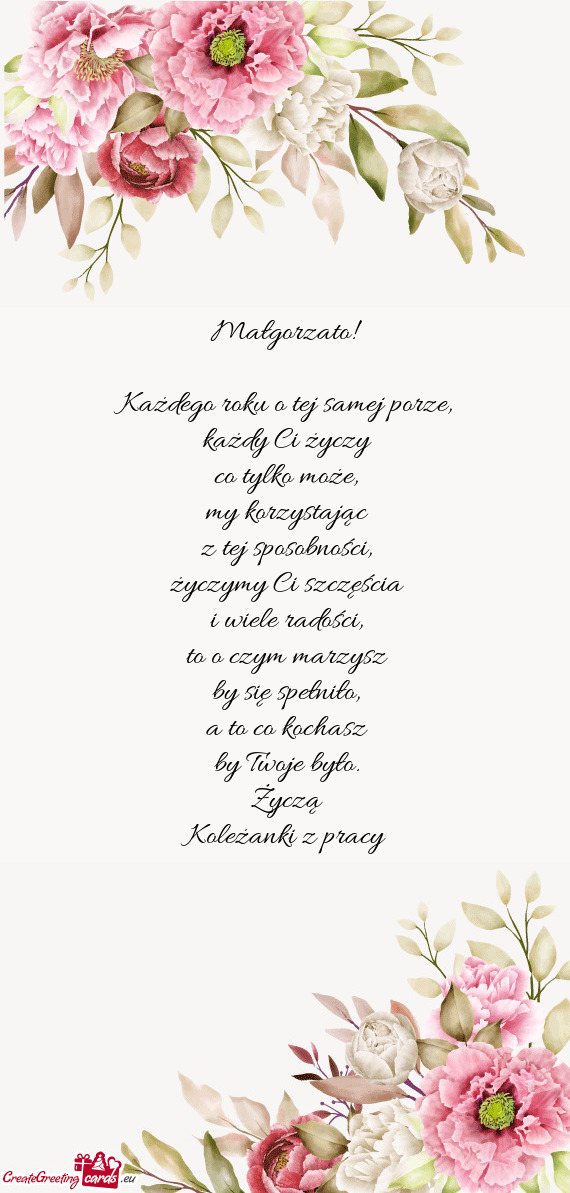 Małgorzato!
Każdego roku o tej samej porze,
każdy Ci życzy
co tylko może,
my korzystając
z tej sposobności,
życzymy Ci szczęścia
i wiele radości,
to o czym marzysz
by się spełniło,
a to co kochasz
by Twoje było.
Życzą
Koleżanki z pracy
CreateGreeting cards .eu